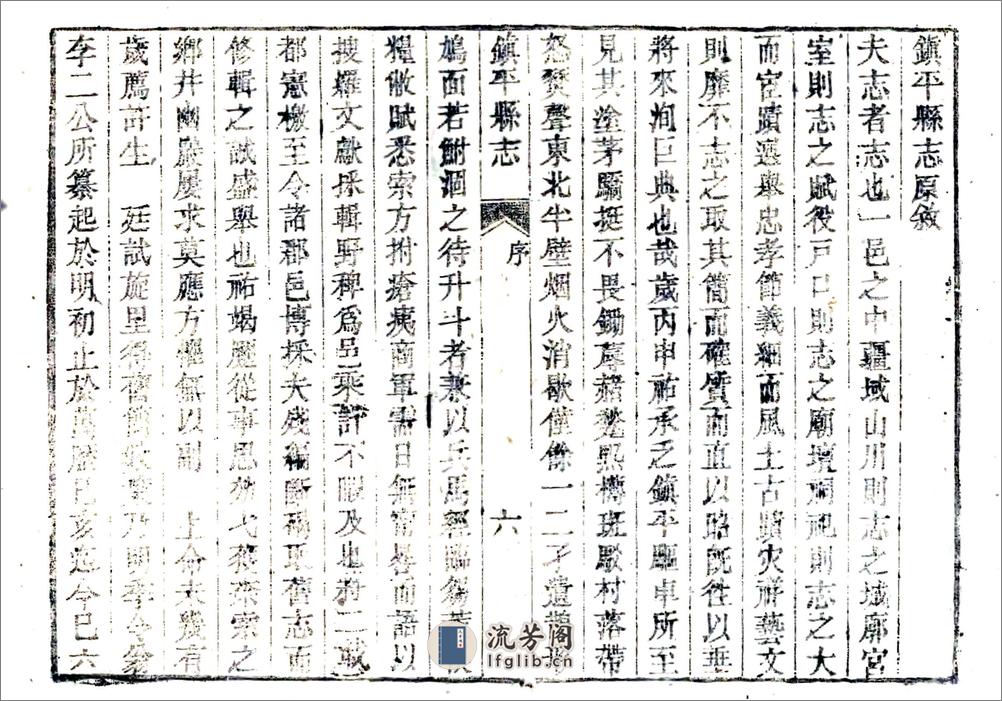 鎮平縣志原敘
夫志者志也一邑之中疆域山川則志之城廓宮
室則志之賦役戸口則志之廟壇祠祀則志之大
而宦蹟選舉忠孝節義細而風土古蹟灾祥藝文
則靡不志之取其簡而確質而直以昭既往以垂
將來洵巨典也哉歲丙申祐承乏鎮平驅車所至
見其塗茅驕挺不畏鋤蓐赭甃烝摶班駁村落帶
怒燹聲東北牛壁烟火消歇僅餘一二孑遺鵠
鎮平縣志
序
六
鳩面若鮒涸之待升斗者兼以兵馬經臨芻
糧敝賦悉索方拊瘡痍商軍需日無常晷而語以
搜羅文獻採輯野稗爲邑乘計不暇及也
都憲檄至令諸郡邑博採大殘編斷碣取舊志而
修輯之誠盛舉也祐竭蹷從事思勒弋
鄉井幽嚴屢求莫應方懼無以副 上命夫
歲薦許生 廷試旋里得舊簡
李二公所纂起於明初止於萬曆己亥迄今已六
流芳閣
lfglib.cn